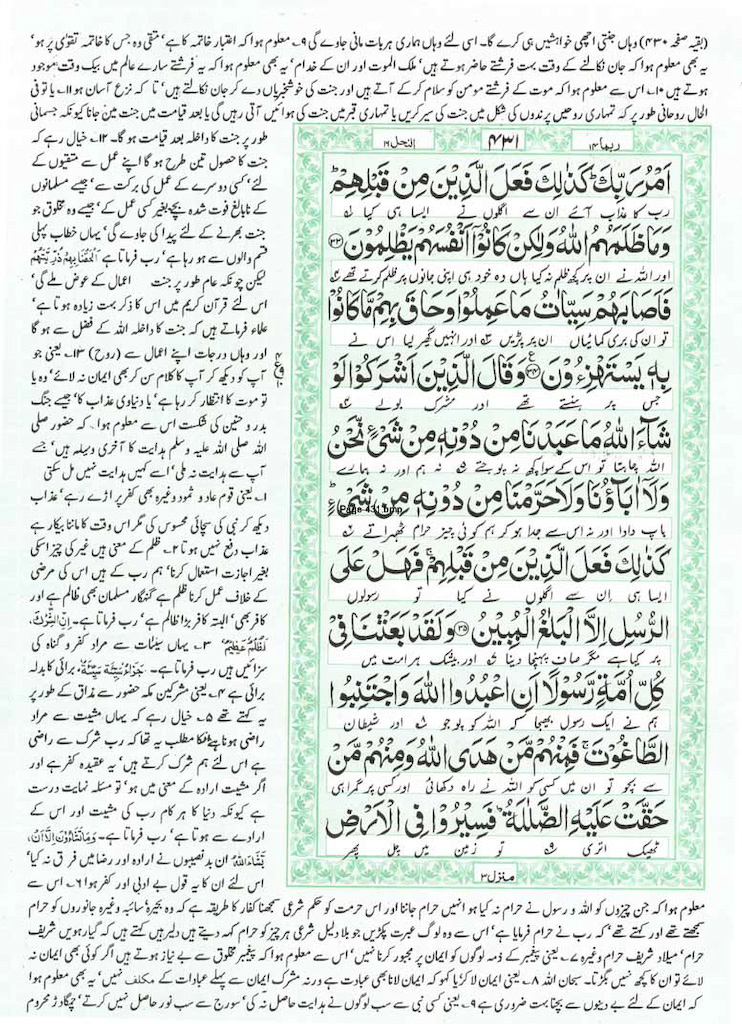 (بقیہ صفحہ ۴۳۰) وہاں جنتی اچھی خواہشیں ہی کرے گا۔ اسی لئے وہاں ہماری ہر بات مانی جاوے گی ۹۔ معلوم ہوا کہ اعتبار خاتمہ کا ہے' متقی وہ جس کا خاتمہ تقوٰی پر ہو'
یہ بھی معلوم ہوا کہ جان نکالنے کے وقت بہت فرشتے حاضر ہوتے ہیں' ملک الموت اور ان کے خدام' یہ بھی معلوم ہوا کہ یہ فرشتے سارے عالم میں بیک وقت موجود
ہوتے ہیں ۱۰۔ اس سے معلوم ہوا کہ موت کے فرشتے مومن کو سلام کر کے آتے ہیں اور جنت کی خوشخبریاں دے کر جان نکالتے ہیں' تا کہ نزع آسان ہو ۱۱۔ یا تو فی
الحال روحانی طور پر کہ تمہاری روحیں پرندوں کی شکل میں جنت کی سیر کریں یا تمہاری قبر میں جنت کی ہوائیں آتی رہیں گی یا بعد قیامت میں جنت میں جانا کیونکہ جسمانی
ربما ۱۴
۴۳۱
النحل ۱۶
اَمْرُ رَبِّكَ ؕ كَذٰلِكَ فَعَلَ الَّذِیْنَ مِنْ قَبْلِهِمْ ؕ
رب کا عذاب آئے ان سے اگلوں نے ایسا ہی کیا
وَمَا ظَلَمَهُمُ اللّٰهُ وَلٰكِنْ كَانُوْۤا اَنْفُسَهُمْ یَظْلِمُوْنَ ﴿۳۳﴾
اور اللہ نے ان پر کچھ ظلم نہ کیا ہاں وہ خود ہی اپنی جانوں پر ظلم کرتے تھے
فَاَصَابَهُمْ سَیِّاٰتُ مَا عَمِلُوْا وَحَاقَ بِهِمْ مَّا كَانُوْا
تو ان کی بری کمائیاں ان پر پڑیں اور انہیں گھیر لیا اس نے
بِهٖ یَسْتَهْزِءُوْنَ ﴿۳۴﴾ وَقَالَ الَّذِیْنَ اَشْرَكُوْا لَوْ
جس پر ہنستے تھے اور مشرک بولے
شَآءَ اللّٰهُ مَا عَبَدْنَا مِنْ دُوْنِهٖ مِنْ شَیْءٍ نَّحْنُ
اللہ چاہتا تو اس کے سوا کچھ نہ پوجتے نہ ہم اور نہ ہمارے
وَلَاۤ اٰبَآؤُنَا وَلَا حَرَّمْنَا مِنْ دُوْنِهٖ مِنْ شَیْءٍ ؕ
Page 431.bmp
باپ دادا اور نہ اس سے جدا ہو کر ہم کوئی چیز حرام ٹھہراتے
كَذٰلِكَ فَعَلَ الَّذِیْنَ مِنْ قَبْلِهِمْ ۚ فَهَلْ عَلَی
ایسا ہی ان سے اگلوں نے کیا تو رسولوں
الرُّسُلِ اِلَّا الْبَلٰغُ الْمُبِیْنُ ﴿۳۵﴾ وَلَقَدْ بَعَثْنَا فِیْ
پر کیا ہے مگر صاف پہنچا دینا اور بیشک ہر امت میں
كُلِّ اُمَّةٍ رَّسُوْلًا اَنِ اعْبُدُوا اللّٰهَ وَاجْتَنِبُوا
ہم نے ایک رسول بھیجا کہ اللہ کو پوجو اور شیطان
الطَّاغُوْتَ ۚ فَمِنْهُمْ مَّنْ هَدَی اللّٰهُ وَمِنْهُمْ مَّنْ
سے بچو تو ان میں کسی کو اللہ نے راہ دکھائی اور کسی پر گمراہی
حَقَّتْ عَلَیْهِ الضَّلٰلَةُ ؕ فَسِیْرُوْا فِی الْاَرْضِ
ٹھیک اتری تو زمین میں چل پھر
منزل ۳
طور پر جنت کا داخلہ بعد قیامت ہو گا۔ ۱۲۔ خیال رہے کہ
جنت کا حصول تین طرح ہو گا اپنے عمل سے متقیوں کے
لئے' کسی دوسرے کے عمل کی برکت سے' جیسے مسلمانوں
کے نابالغ فوت شدہ بچے بغیر کسی عمل کے' جیسے وہ مخلوق جو
جنت بھرنے کے لئے پیدا کی جاوے گی' یہاں خطاب پہلی
قسم والوں سے ہو رہا ہے' رب فرماتا ہے اَلْحَقْنَا بِهِمْ ذُرِّیَّتَهُمْ
لیکن چونکہ عام طور پر جنت اعمال کے عوض ملے گی'
اس لئے قرآن کریم میں اس کا ذکر بہت زیادہ ہوتا ہے'
علماء فرماتے ہیں کہ جنت کا داخلہ اللہ کے فضل سے ہو گا
اور وہاں درجات اپنے اعمال سے (روح) ۱۳۔ یعنی جو
آپ کو دیکھ کر آپ کا کلام سن کر بھی ایمان نہ لائے' وہ یا
تو موت کا انتظار کر رہا ہے' یا دنیاوی عذاب کا' جیسے جنگ
بدر و حنین کی شکست اس سے معلوم ہوا۔ کہ حضور صلی
اللہ صلی اللہ علیہ وسلم ہدایت کا آخری وسیلہ ہیں' جسے
آپ سے ہدایت نہ ملی' اسے کہیں ہدایت نہیں مل سکتی
۱۔ یعنی قوم عاد و ثمود وغیرہ بھی کفر پر اڑے رہے' عذاب
دیکھ کر نبی کی سچائی محسوس کی مگر اس وقت کا ماننا بیکار ہے
عذاب دفع نہیں ہوتا ۲۔ ظلم کے معنی ہیں غیر کی چیز اسکی
بغیر اجازت استعمال کرنا' ہم رب کے ہیں اس کی مرضی
کے خلاف عمل کرنا ظلم ہے گنہگار مسلمان بھی ظالم ہے اور
کافر بھی' البتہ کافر بڑا ظالم ہے' رب فرماتا ہے۔ اِنَّ الشِّرْكَ
لَظُلْمٌ عَظِیْمٌ' ۳۔ یہاں سیئات سے مراد کفر و گناہ کی
سزائیں ہیں رب فرماتا ہے۔ جَزَاءُ سَیِّئَةٍ سَیِّئَةٌ۔ برائی کا بدلہ
برائی ہے ۴۔ یعنی مشرکین مکہ حضور سے مذاق کے طور پر
یہ کہتے تھے ۵۔ خیال رہے کہ یہاں مشیت سے مراد
راضی ہونا ہے انکا مطلب یہ تھا کہ رب شرک سے راضی
ہے اس لئے ہم شرک کرتے ہیں' یہ عقیدہ کفر ہے اور
اگر مشیت ارادہ کے معنی میں ہو' تو مسئلہ نہایت درست
ہے کیونکہ دنیا کا ہر کام رب کی مشیت اور اس کے
ارادے سے ہوتا ہے' رب فرماتا ہے۔ وَمَا تَشَاءُوْنَ اِلَّا اَنْ،
یَّشَاءَ اللّٰهُ' ان بد نصیبوں نے ارادہ اور رضا میں فرق نہ کیا'
اس لئے ان کا یہ قول بے ادبی اور کفر ہوا ۶۔ اس سے
معلوم ہوا کہ جن چیزوں کو اللہ و رسول نے حرام نہ کیا ہو انہیں حرام جاننا اور اس حرمت کو حکم شرعی سمجھنا کفار کا طریقہ ہے کہ وہ بحیرہ سائبہ وغیرہ جانوروں کو حرام
سمجھتے تھے اور کہتے تھے' کہ رب نے حرام فرمایا ہے' اس سے وہ لوگ عبرت پکڑیں جو بلا دلیل شرعی ہر چیز کو حرام کہہ دیتے ہیں دلیر ہیں کہتے ہیں کہ گیارہویں شریف
حرام' میلاد شریف حرام وغیرہ ۷۔ یعنی پیغمبر کے ذمہ لوگوں کو ایمان پر مجبور کرنا نہیں' اس سے معلوم ہوا کہ پیغمبر مخلوق سے بے نیاز ہوتے ہیں اگر کوئی بھی ایمان نہ
لائے تو ان کا کچھ نہیں بگڑتا۔ سبحان اللہ ۸۔ یعنی ایمان لاکر پڑھا کہو کہ ایمان لانا بھی عبادت ہے ورنہ مشرک ایمان سے پہلے عبادات کے مکلف نہیں' یہ بھی معلوم ہوا
کہ ایمان کے لئے بے دینوں سے بچنا بہت ضروری ہے ۹۔ یعنی کسی نبی سے سب لوگوں نے ہدایت حاصل نہ کی' سورج سے سب نور حاصل نہیں کرتے' چمگادڑ محروم